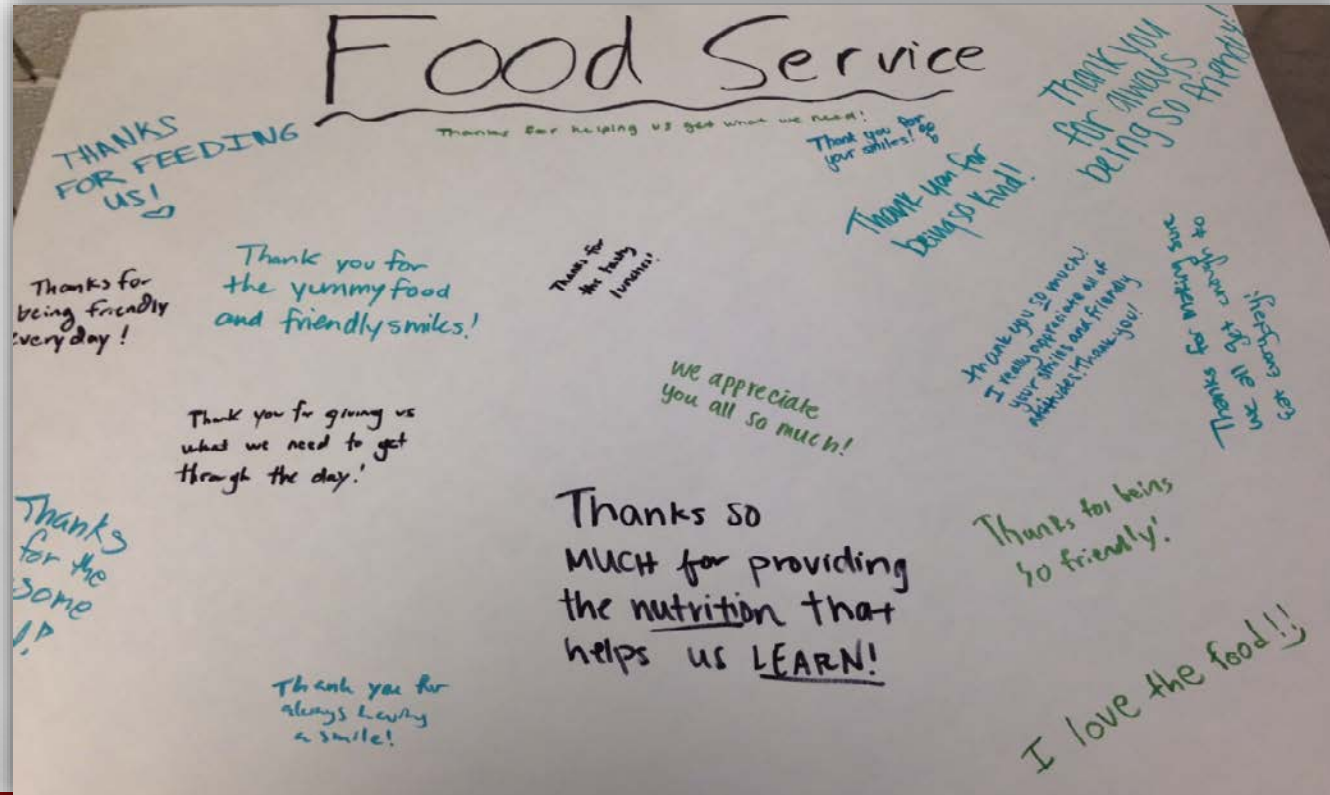 Food Service
Thanks for helping us get what we need!
THANKS
FOR FEEDING
US!
Thank you for
your smiles!
Thank you
for always
being so friendly!
Thank you for
being so kind!
Thanks for
being friendly
everyday!
Thank you for
the yummy food
and friendly smiles!
Thanks for
the tasty
lunches!
Thank you so much!
I really appreciate all of
your smiles and friendly
attitudes! Thank you!
Thanks for making sure
we all get enough to
eat everyday!
we appreciate
you all so much!
Thank you for giving us
what we need to get
through the day!
Thanks
for the
Thanks so
MUCH for providing
the nutrition that
helps us LEARN!
Thanks for being
so friendly!
Thank you for
always having
a smile!
I love the food!!